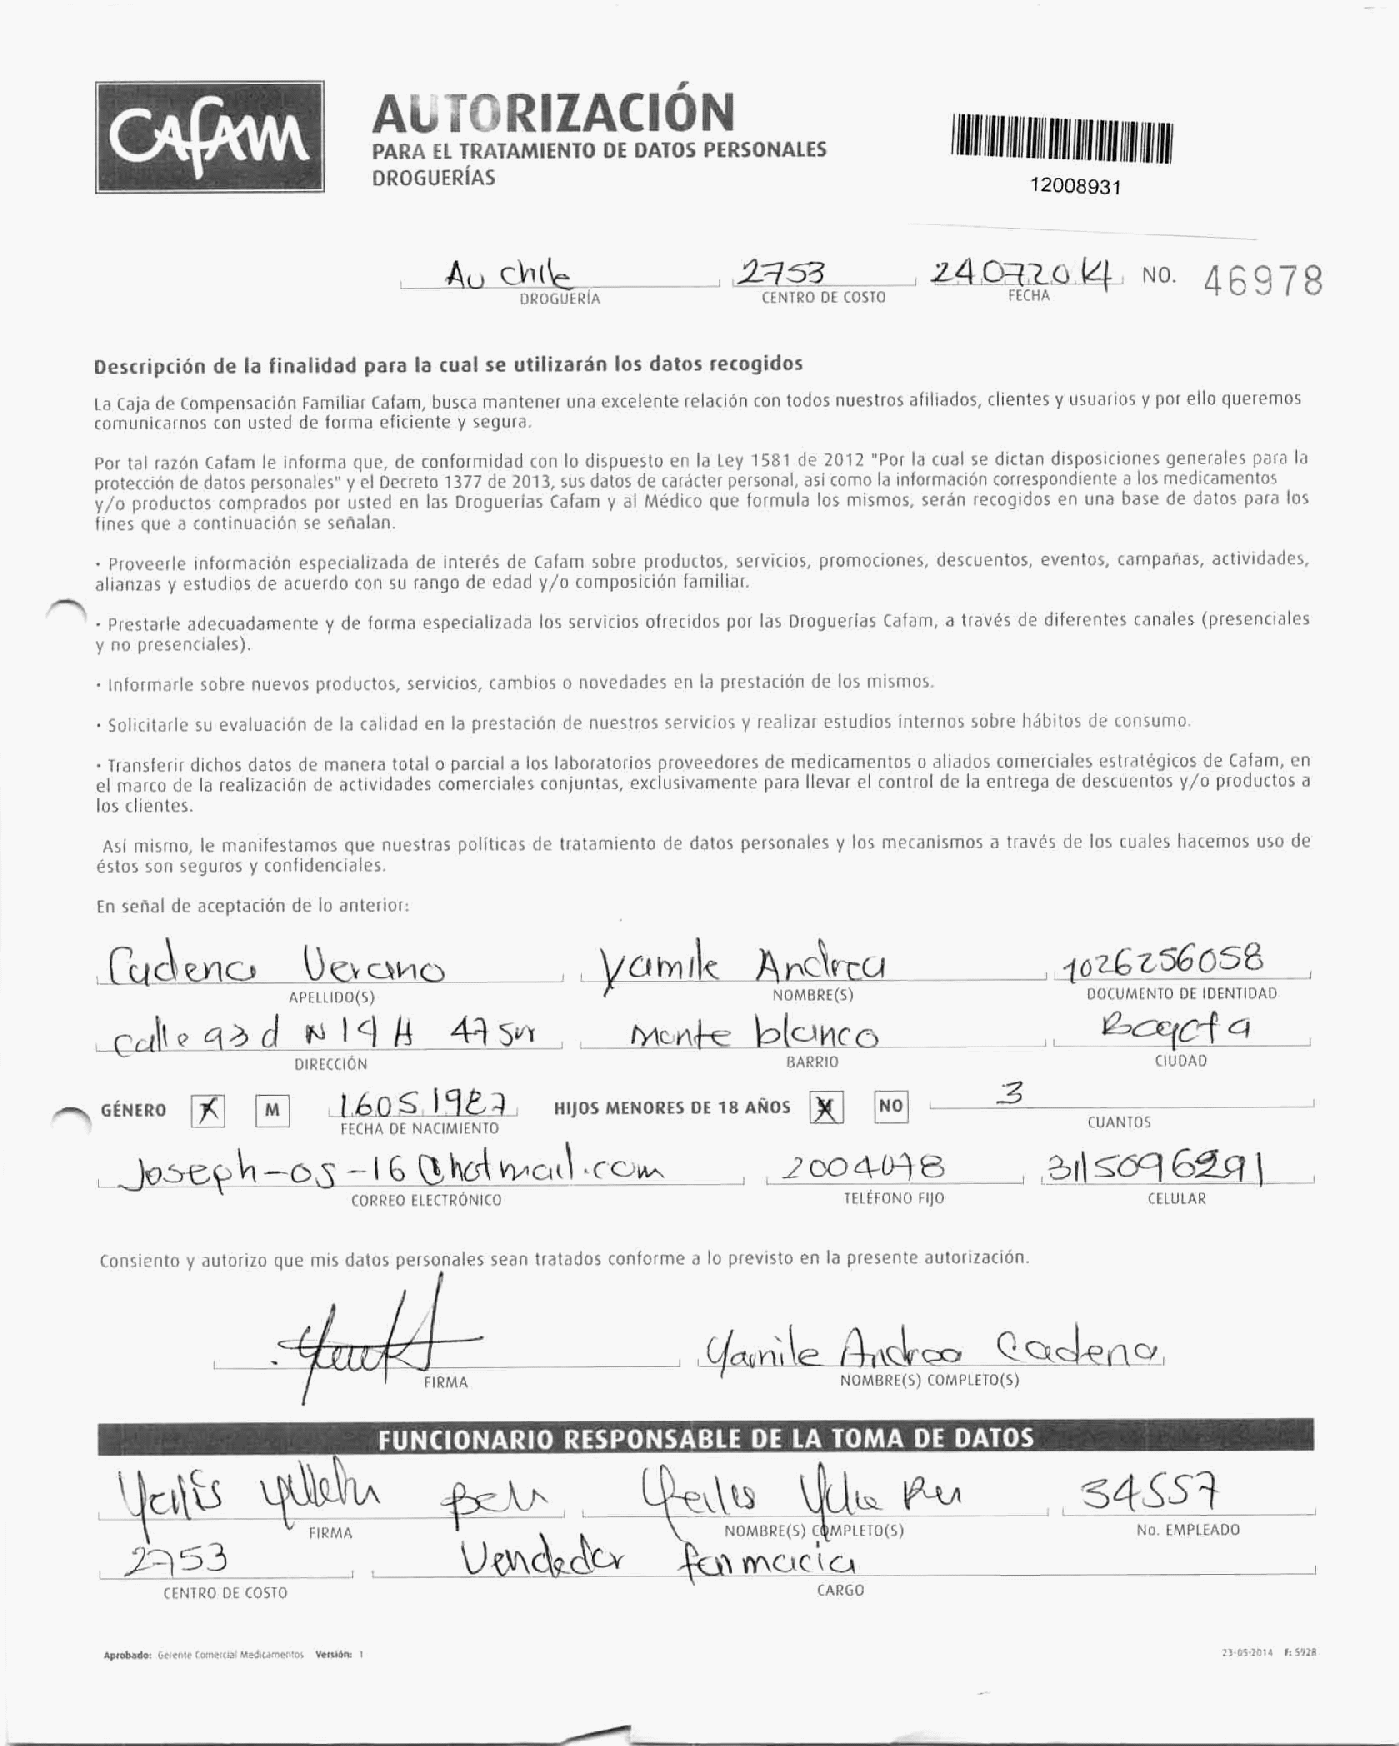 CAFAM
AUTORIZACIÓN
PARA EL TRATAMIENTO DE DATOS PERSONALES
DROGUERÍAS
12008931
Av chile 2753 24072014 NO. 46978
DROGUERÍA CENTRO DE COSTO FECHA
Descripción de la finalidad para la cual se utilizarán los datos recogidos
La Caja de Compensación Familiar Cafam, busca mantener una excelente relación con todos nuestros afiliados, clientes y usuarios y por ello queremos
comunicarnos con usted de forma eficiente y segura.
Por tal razón Cafam le informa que, de conformidad con lo dispuesto en la Ley 1581 de 2012 "Por la cual se dictan disposiciones generales para la
protección de datos personales" y el Decreto 1377 de 2013, sus datos de carácter personal, así como la información correspondiente a los medicamentos
y/o productos comprados por usted en las Droguerías Cafam y al Médico que formula los mismos, serán recogidos en una base de datos para los
fines que a continuación se señalan.
· Proveerle información especializada de interés de Cafam sobre productos, servicios, promociones, descuentos, eventos, campañas, actividades,
alianzas y estudios de acuerdo con su rango de edad y/o composición familiar.
· Prestarle adecuadamente y de forma especializada los servicios ofrecidos por las Droguerías Cafam, a través de diferentes canales (presenciales
y no presenciales).
· Informarle sobre nuevos productos, servicios, cambios o novedades en la prestación de los mismos.
· Solicitarle su evaluación de la calidad en la prestación de nuestros servicios y realizar estudios internos sobre hábitos de consumo.
· Transferir dichos datos de manera total o parcial a los laboratorios proveedores de medicamentos o aliados comerciales estratégicos de Cafam, en
el marco de la realización de actividades comerciales conjuntas, exclusivamente para llevar el control de la entrega de descuentos y/o productos a
los clientes.
Así mismo, le manifestamos que nuestras políticas de tratamiento de datos personales y los mecanismos a través de los cuales hacemos uso de
éstos son seguros y confidenciales.
En señal de aceptación de lo anterior:
Cadena Verano Yamile Andrea 1026256058
APELLIDO(S) NOMBRE(S) DOCUMENTO DE IDENTIDAD
calle 93 d N 19 A 47 sur Monte blanco Bogota
DIRECCIÓN BARRIO CIUDAD
GÉNERO X M 16051987 HIJOS MENORES DE 18 AÑOS X NO 3
FECHA DE NACIMIENTO CUANTOS
Joseph-os-16@hotmail.com 2004078 3115096291
CORREO ELECTRÓNICO TELÉFONO FIJO CELULAR
Consiento y autorizo que mis datos personales sean tratados conforme a lo previsto en la presente autorización.
Yamile Andrea Cadena
FIRMA NOMBRE(S) COMPLETO(S)
FUNCIONARIO RESPONSABLE DE LA TOMA DE DATOS
34557
FIRMA NOMBRE(S) COMPLETO(S) No. EMPLEADO
2753 Vendedor farmacia
CENTRO DE COSTO CARGO
Aprobado: Gerente Comercial Medicamentos Versión: 1 23-05-2014 F: 5928